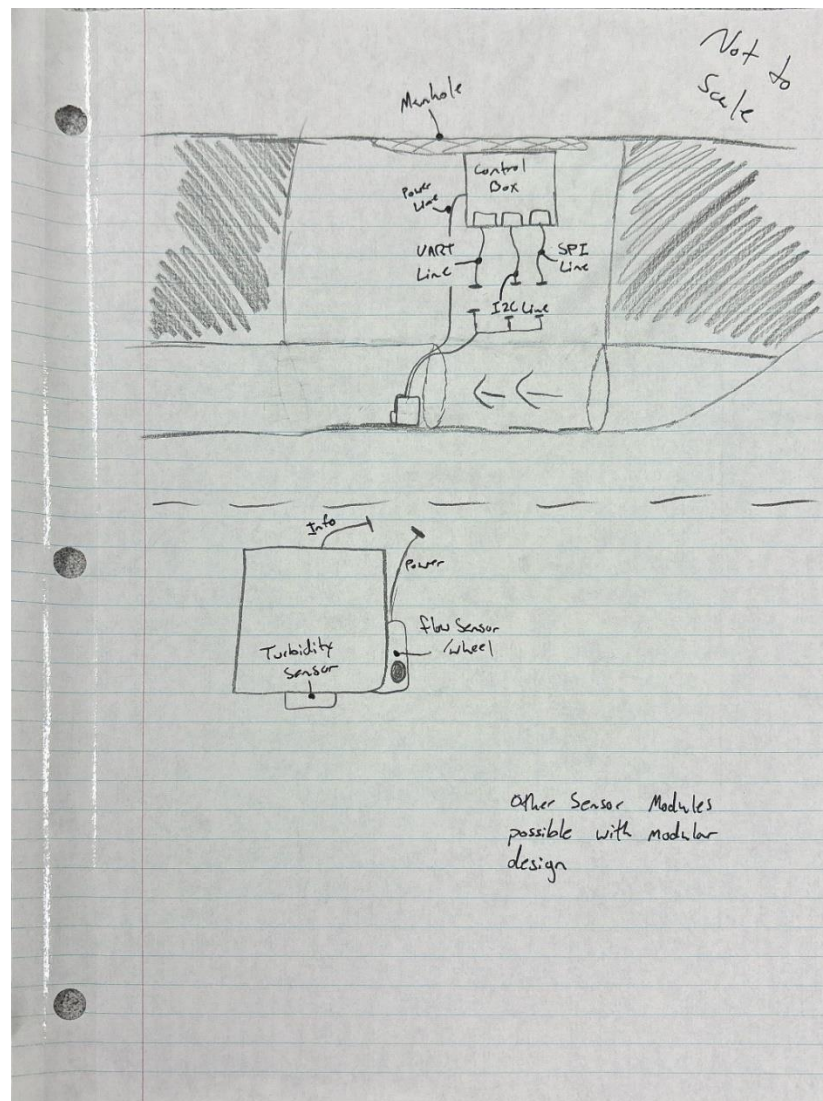 Not to
Scale
Manhole
Control
Box
Power
Line
UART
Line
SPI
Line
I2C Line
Info
Power
flow Sensor
/wheel
Turbidity
Sensor
Other Sensor Modules
possible with modular
design